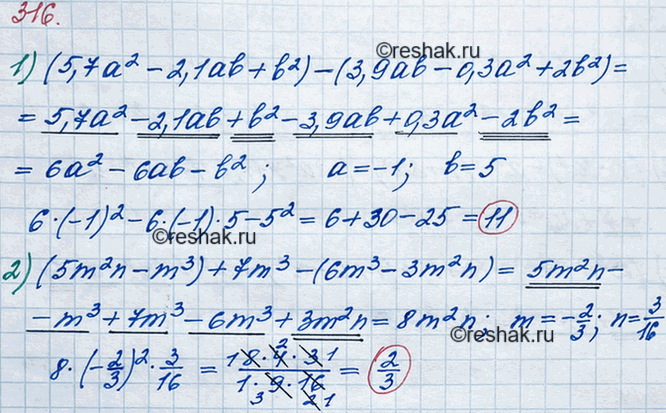 316.
©reshak.ru
1) (5,7a² - 2,1ab + b²) - (3,9ab - 0,3a² + 2b²) =
= 5,7a² - 2,1ab + b² - 3,9ab + 0,3a² - 2b² =
= 6a² - 6ab - b²; a = -1; b = 5
6·(-1)² - 6·(-1)·5 - 5² = 6 + 30 - 25 = 11
©reshak.ru
2) (5m²n - m³) + 7m³ - (6m³ - 3m²n) = 5m²n -
- m³ + 7m³ - 6m³ + 3m²n = 8m²n; m = -2/3; n = 3/16
©reshak.ru
8·(-2/3)²·3/16 = 1 8·4 2·3 1 / 1·9 3·16 2 1 = 2/3